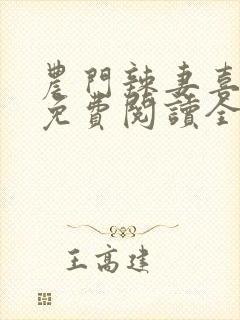 農門辣妻喜
免費閱讀全
王高建